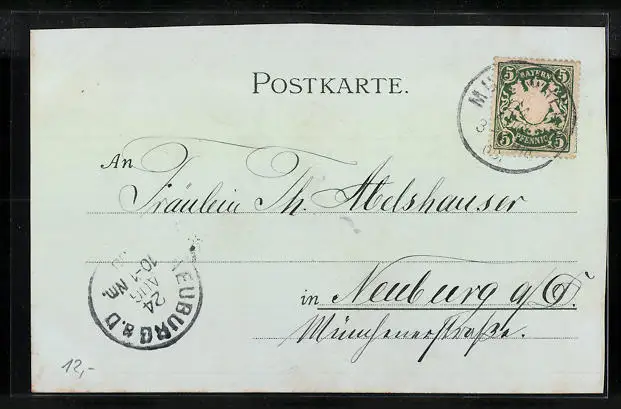 POSTKARTE.
5 BAYERN 5
5 PFENNIG 5
An
Fräulein Th. Abelshauser
in Neuburg a/D.
Münchenerstraße.
NEUBURG a.D.
24
AUG
10-1 Nm.
12,-